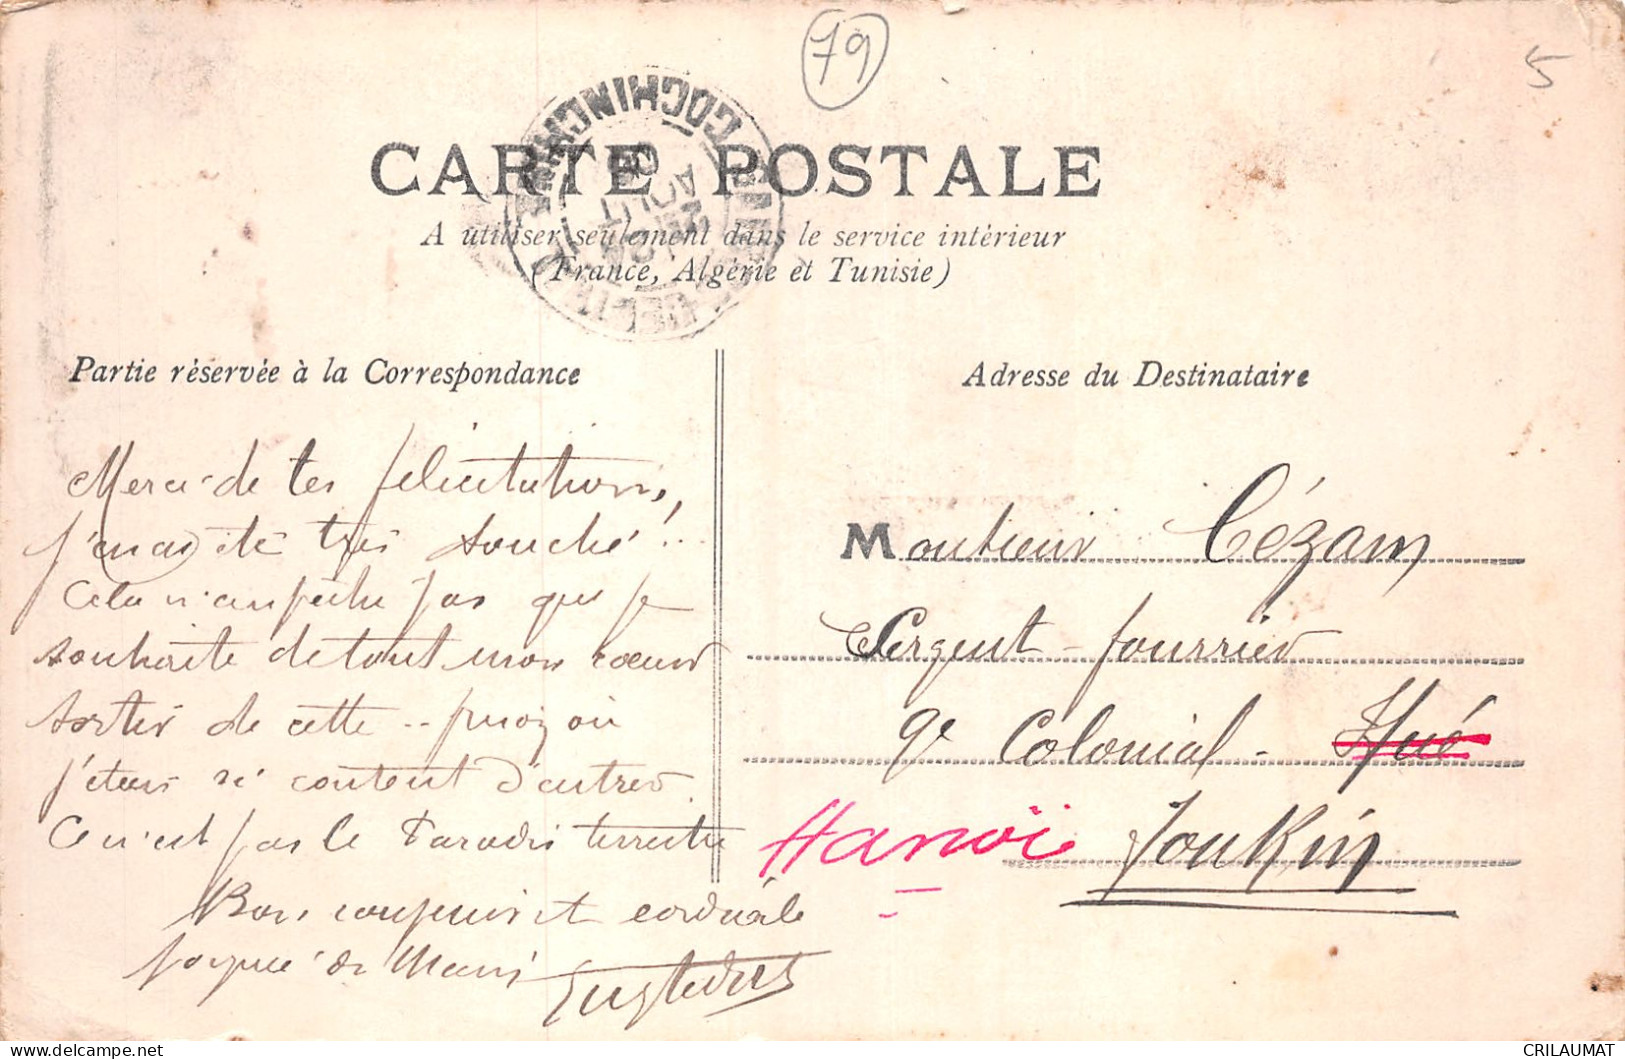 79
5
COCHINCHINE
AOUT
CARTE POSTALE
A utiliser seulement dans le service intérieur
(France, Algérie et Tunisie)
Partie réservée à la Correspondance
Merci de tes félicitations,
j'en ai été très touché!..
Cela n'empêche pas que je
souhaite de tout mon cœur
sortir de cette .. où
j'étais si content d'entrer.
Ce n'est pas le Paradis terrestre
Bons et cordiale
poignée de main
Adresse du Destinataire
Monsieur Cézam
Sergent-fourrier
9e Colonial - Hué
Hanoï Tonkin
CRILAUMAT